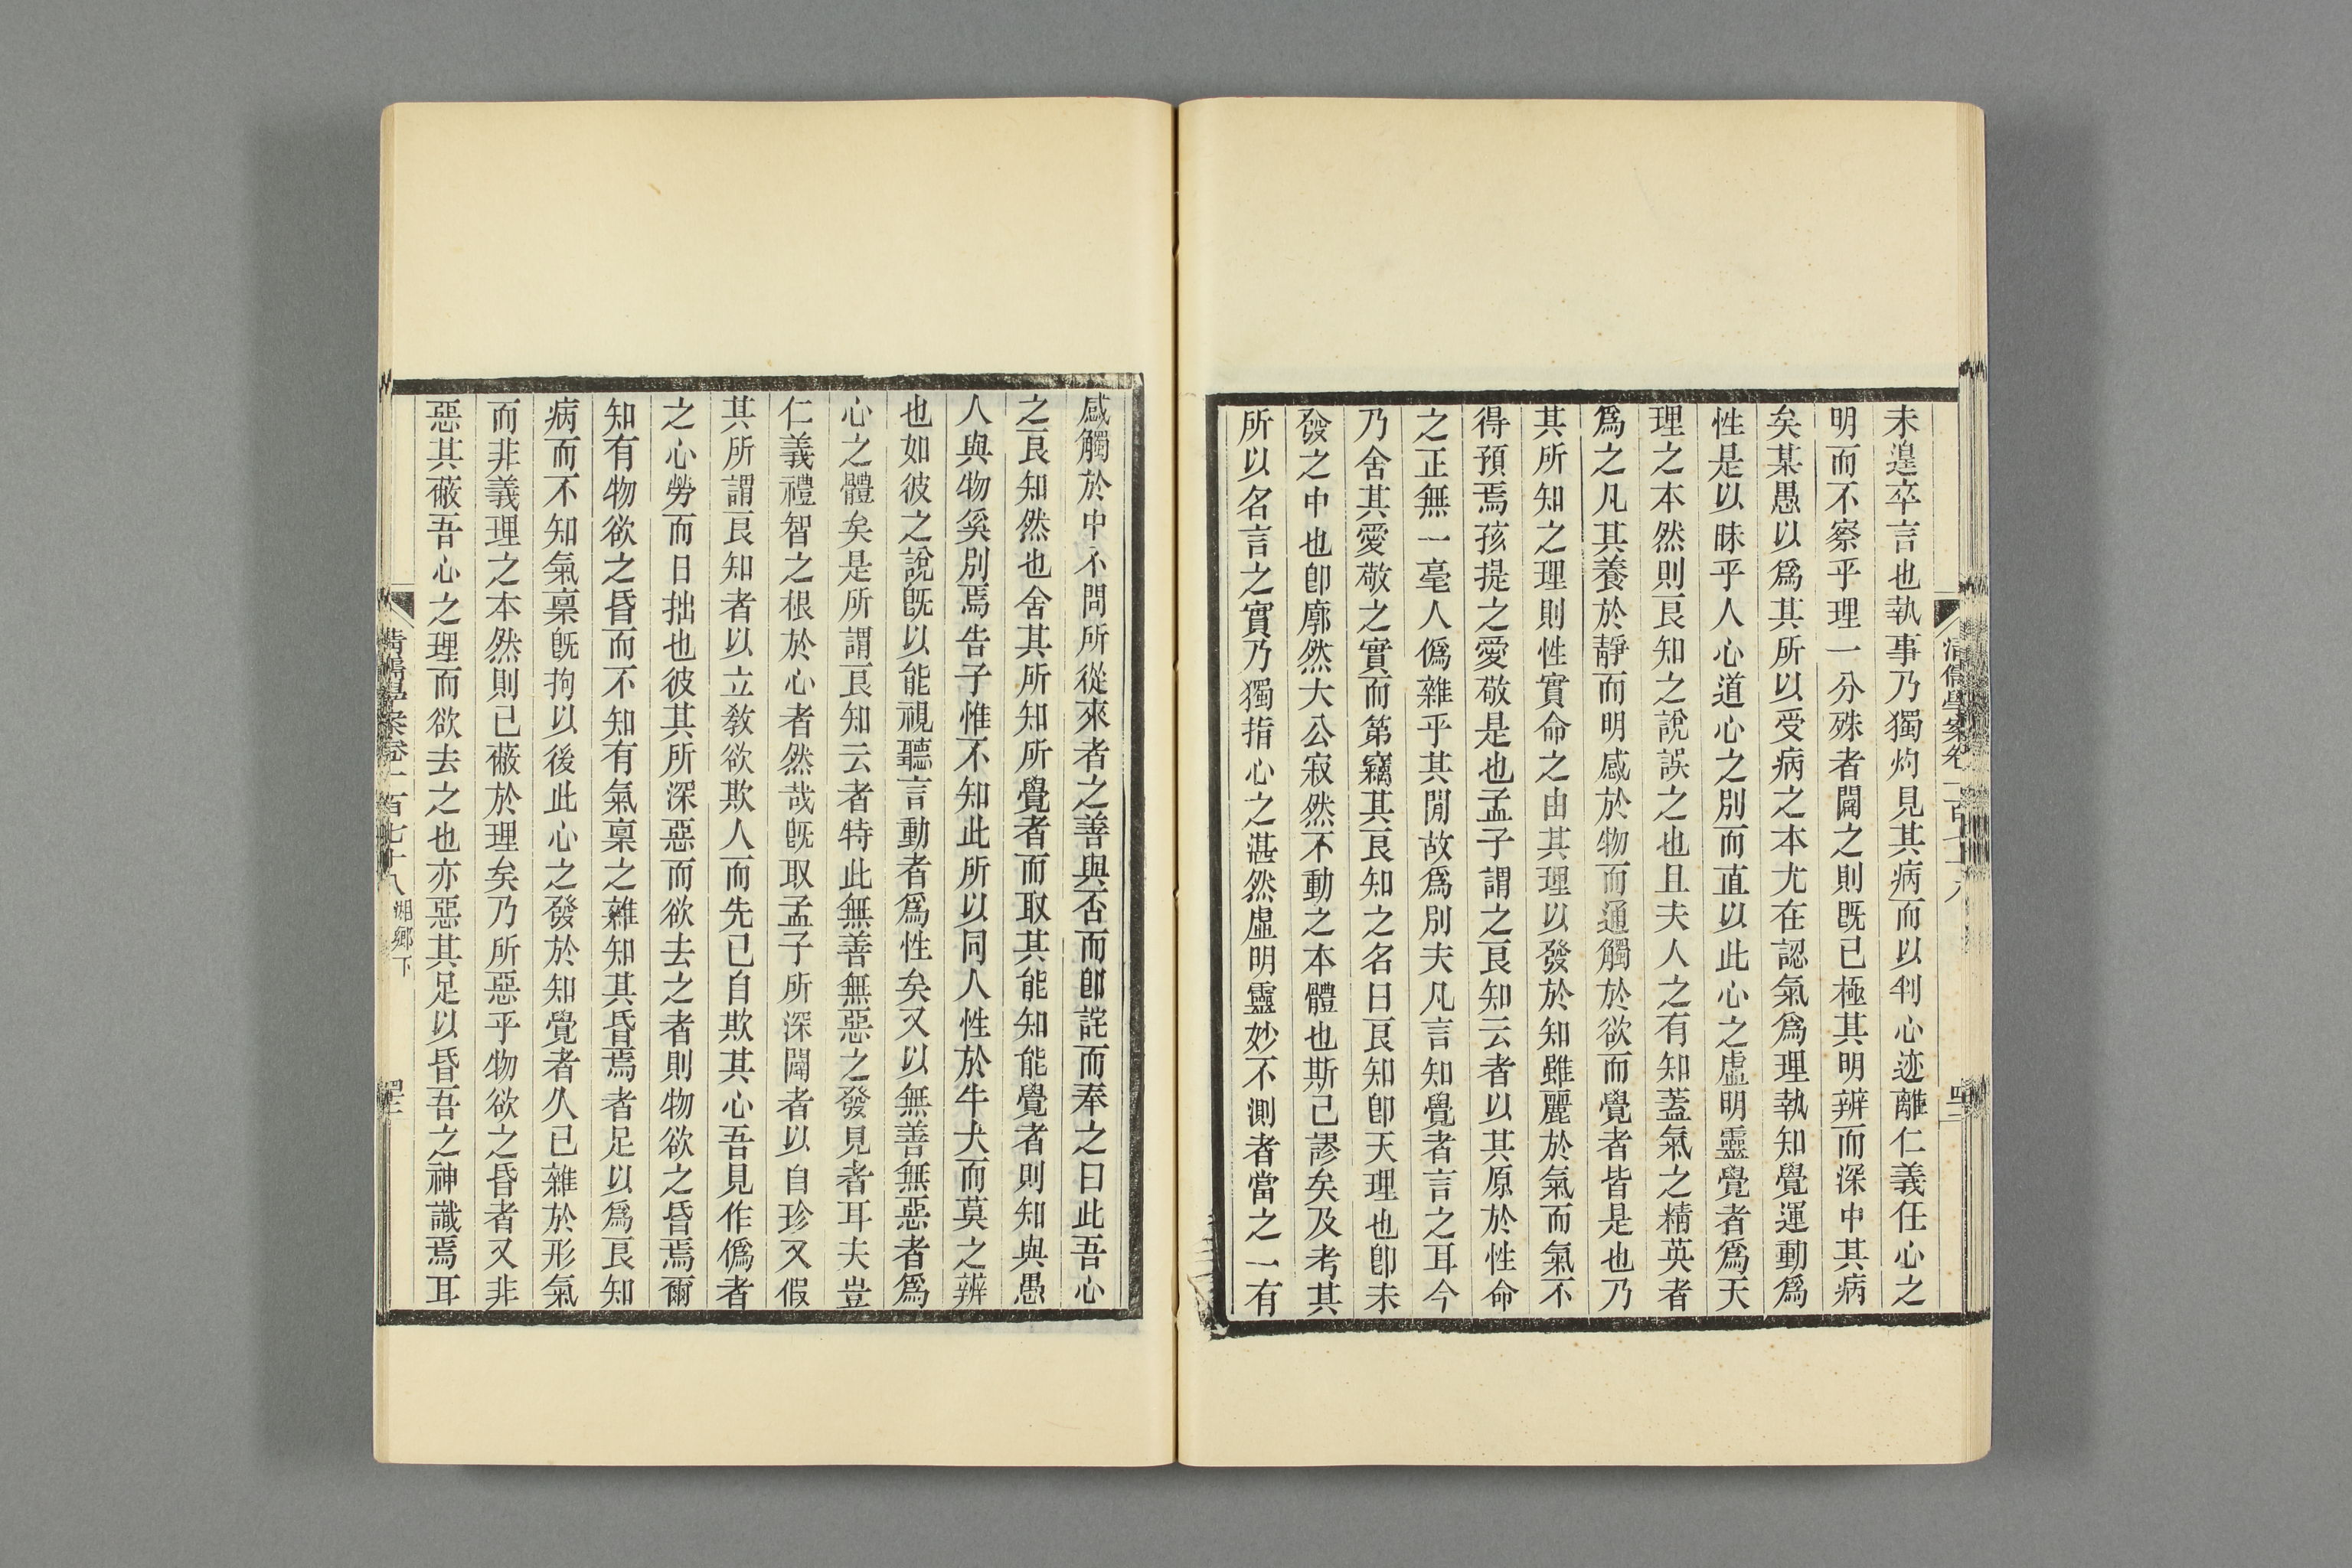 未遑卒言也執事乃獨灼見其病而以判心迹離仁義任心之
明而不察乎理一分殊者闢之則旣已極其明辨而深中其病
矣某愚以爲其所以受病之本尤在認氣爲理執知覺運動爲
性是以昧乎人心道心之別而直以此心之虛明靈覺者爲天
理之本然則良知之說誤之也且夫人之有知蓋氣之精英者
爲之凡其養於靜而明感於物而通觸於欲而覺者皆是也乃
其所知之理則性實命之由其理以發於知雖麗於氣而氣不
得預焉孩提之愛敬是也孟子謂之良知云者以其原於性命
之正無一毫人僞雜乎其閒故爲別夫凡言知覺者言之耳今
乃舍其愛敬之實而第竊其良知之名曰良知卽天理也卽未
發之中也卽廓然大公寂然不動之本體也斯已謬矣及考其
所以名言之實乃獨指心之湛然虛明靈妙不測者當之一有
感觸於中不問所從來者之善與否而卽詫而奉之曰此吾心
之良知然也舍其所知所覺者而取其能知能覺者則知與愚
人與物奚別焉告子惟不知此所以同人性於牛犬而莫之辨
也如彼之說旣以能視聽言動者爲性矣又以無善無惡者爲
心之體矣是所謂良知云者特此無善無惡之發見者耳夫豈
仁義禮智之根於心者然哉旣取孟子所深闢者以自珍又假
其所謂良知者以立敎欲欺人而先已自欺其心吾見作僞者
之心勞而日拙也彼其所深惡而欲去之者則物欲之昏焉爾
知有物欲之昏而不知有氣稟之雜知其昏焉者足以爲良知
病而不知氣稟旣拘以後此心之發於知覺者久已雜於形氣
而非義理之本然則已蔽於理矣乃所惡乎物欲之昏者又非
惡其蔽吾心之理而欲去之也亦惡其足以昏吾之神識焉耳
清儒學案卷一百七十八 湘鄉下